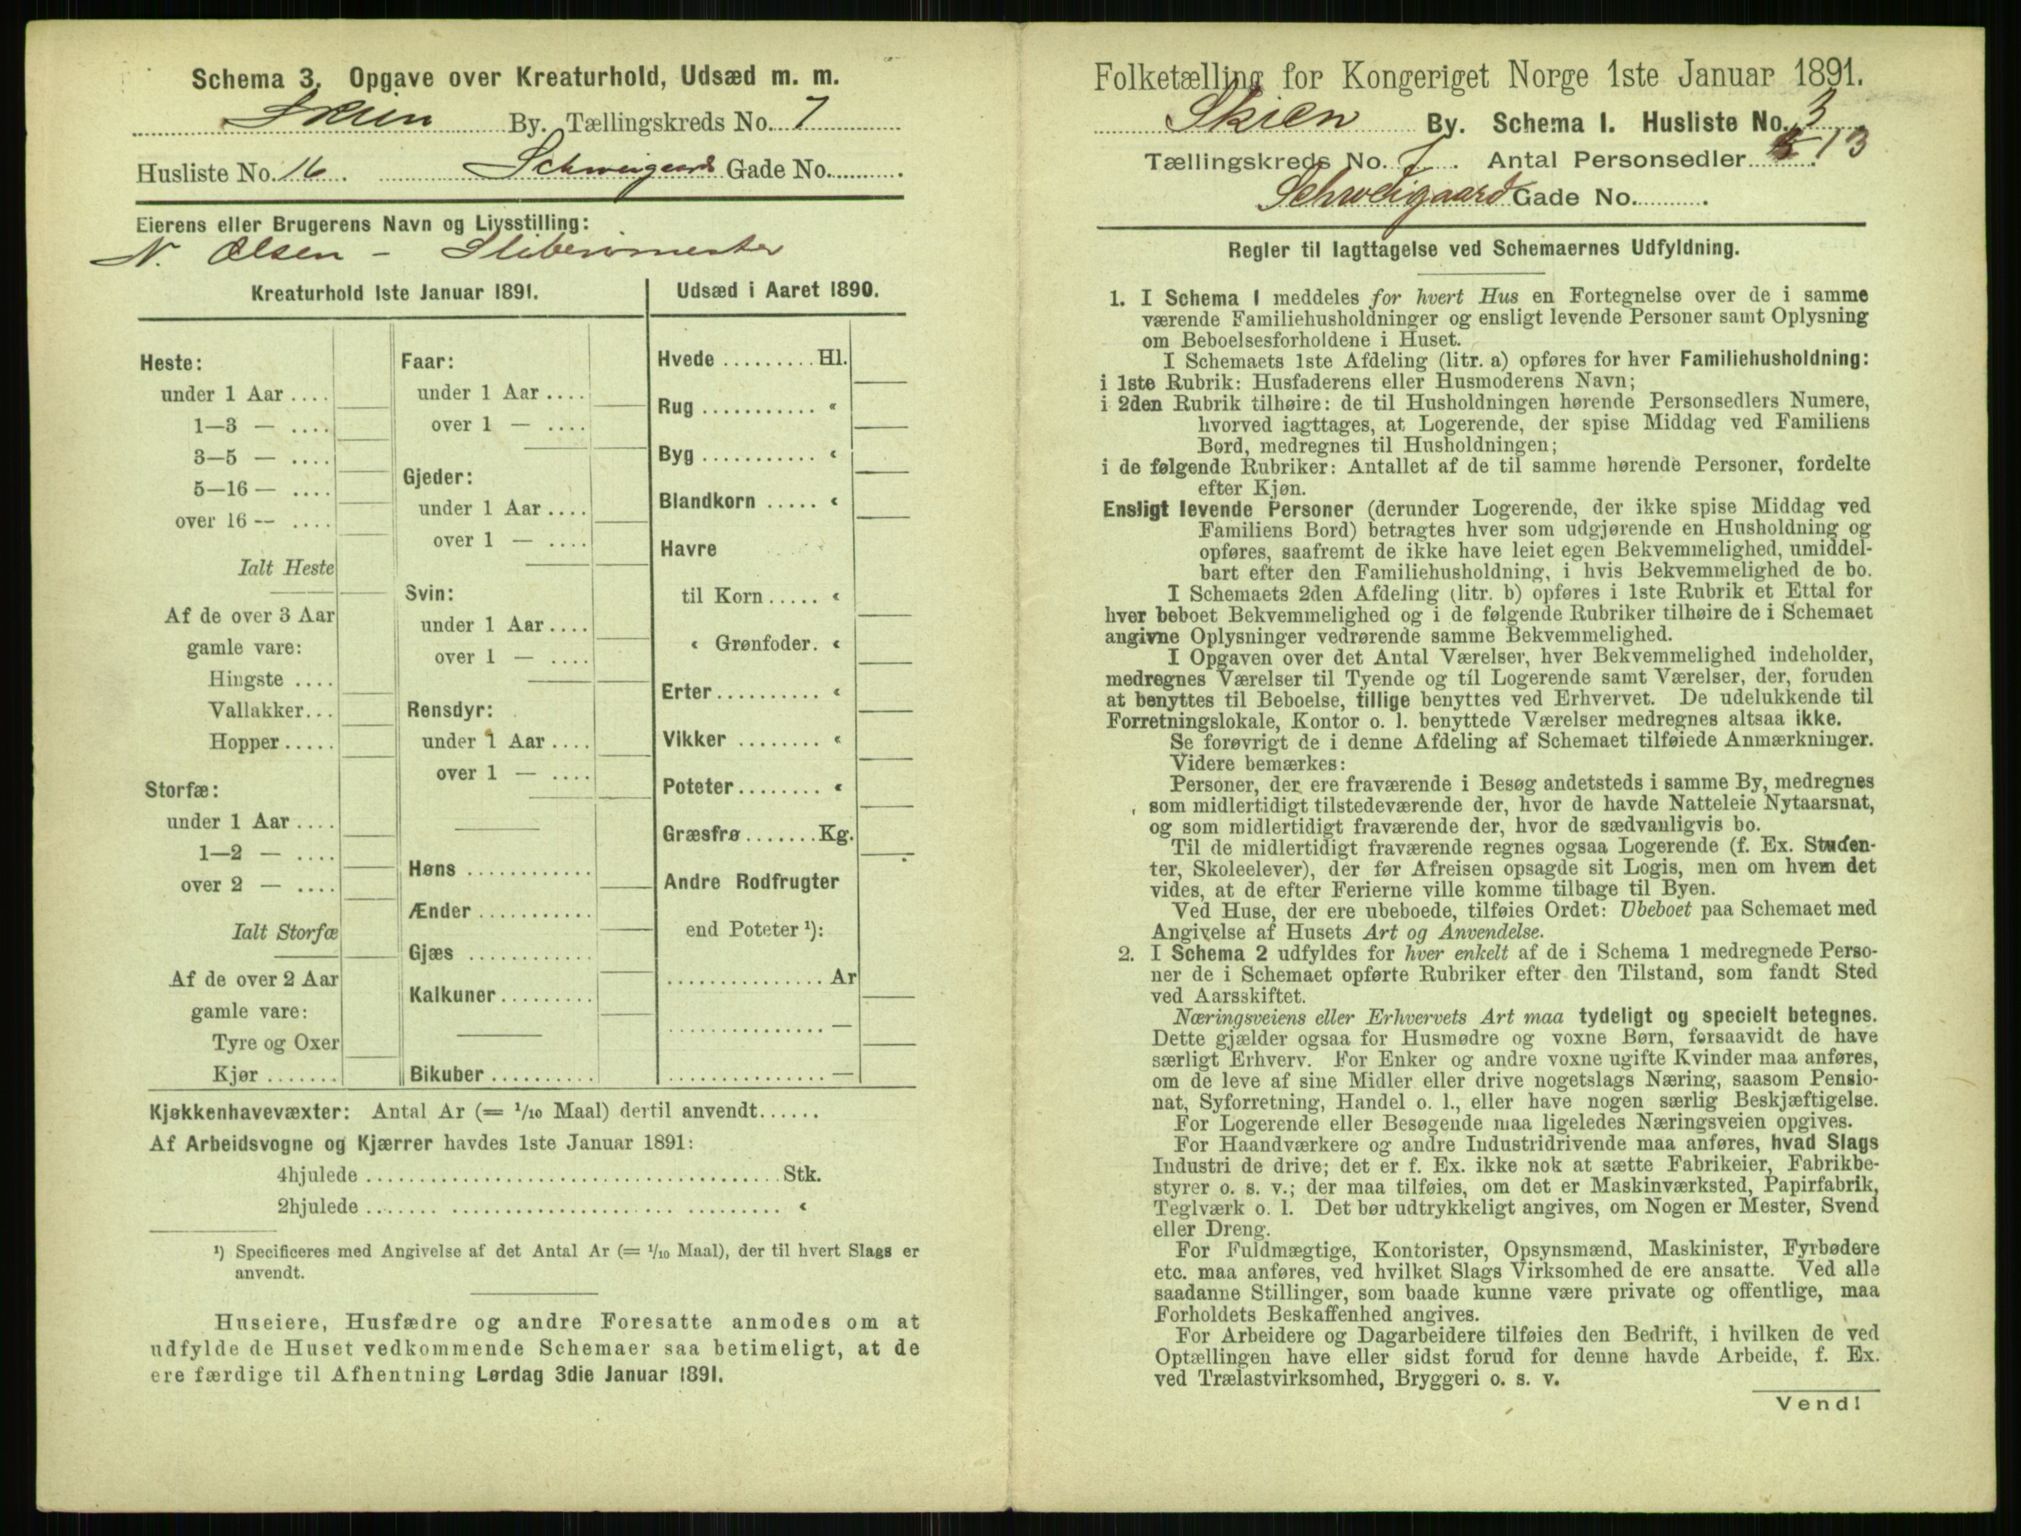 Schema 3. Opgave over Kreaturhold, Udsæd m. m.
Skien By. Tællingskreds No. 7
Husliste No. 16. Schweigaards Gade No.
Eierens eller Brugerens Navn og Livsstilling:
N. Olsen - Sliberimester
Kreaturhold 1ste Januar 1891.
Heste:
under 1 Aar ....
1—3 — ....
3—5 — ....
5—16 — ....
over 16 -- ....
Ialt Heste
Af de over 3 Aar
gamle vare:
Hingste ....
Vallakker...
Hopper.....
Storfæ:
under 1 Aar ....
1—2 — ....
over 2 — ....
Ialt Storfæ
Af de over 2 Aar
gamle vare:
Tyre og Oxer
Kjør .......
Faar:
under 1 Aar ....
over 1 — ....
Gjeder:
under 1 Aar ....
over 1 — ....
Svin:
under 1 Aar ....
over 1 — ....
Rensdyr:
under 1 Aar ....
over 1 — ....
Høns ............
Ænder ...........
Gjæs ............
Kalkuner .........
Bikuber ..........
Udsæd i Aaret 1890.
Hvede ......... Hl.
Rug ........... «
Byg ........... «
Blandkorn ..... «
Havre
til Korn ..... «
« Grønfoder. «
Erter .......... «
Vikker ........ «
Poteter ........ «
Græsfrø ....... Kg.
Andre Rodfrugter
end Poteter ¹):
............... Ar
............... —
............... —
Kjøkkenhavevæxter: Antal Ar (= 1/10 Maal) dertil anvendt......
Af Arbeidsvogne og Kjærrer havdes 1ste Januar 1891:
4hjulede ....................................... Stk.
2hjulede ....................................... «
¹) Specificeres med Angivelse af det Antal Ar (= 1/10 Maal), der til hvert Slags er
anvendt.
Huseiere, Husfædre og andre Foresatte anmodes om at
udfylde de Huset vedkommende Schemaer saa betimeligt, at de
ere færdige til Afhentning Lørdag 3die Januar 1891.
Folketælling for Kongeriget Norge 1ste Januar 1891.
Skien By. Schema 1. Husliste No. 3
Tællingskreds No. 7. Antal Personsedler 13
Schweigaard Gade No.
Regler til Iagttagelse ved Schemaernes Udfyldning.
1. I Schema 1 meddeles for hvert Hus en Fortegnelse over de i samme
værende Familiehusholdninger og ensligt levende Personer samt Oplysning
om Beboelsesforholdene i Huset.
I Schemaets 1ste Afdeling (litr. a) opføres for hver Familiehusholdning:
i 1ste Rubrik: Husfaderens eller Husmoderens Navn;
i 2den Rubrik tilhøire: de til Husholdningen hørende Personsedlers Numere,
hvorved iagttages, at Logerende, der spise Middag ved Familiens
Bord, medregnes til Husholdningen;
i de følgende Rubriker: Antallet af de til samme hørende Personer, fordelte
efter Kjøn.
Ensligt levende Personer (derunder Logerende, der ikke spise Middag ved
Familiens Bord) betragtes hver som udgjørende en Husholdning og
opføres, saafremt de ikke have leiet egen Bekvemmelighed, umiddel-
bart efter den Familiehusholdning, i hvis Bekvemmelighed de bo.
I Schemaets 2den Afdeling (litr. b) opføres i 1ste Rubrik et Ettal for
hver beboet Bekvemmelighed og i de følgende Rubriker tilhøire de i Schemaet
angivne Oplysninger vedrørende samme Bekvemmelighed.
I Opgaven over det Antal Værelser, hver Bekvemmelighed indeholder,
medregnes Værelser til Tyende og til Logerende samt Værelser, der, foruden
at benyttes til Beboelse, tillige benyttes ved Erhvervet. De udelukkende til
Forretningslokale, Kontor o. l. benyttede Værelser medregnes altsaa ikke.
Se forøvrigt de i denne Afdeling af Schemaet tilføiede Anmærkninger.
Videre bemærkes:
Personer, der ere fraværende i Besøg andetsteds i samme By, medregnes
som midlertidigt tilstedeværende der, hvor de havde Natteleie Nytaarsnat,
og som midlertidigt fraværende der, hvor de sædvanligvis bo.
Til de midlertidigt fraværende regnes ogsaa Logerende (f. Ex. Studen-
ter, Skoleelever), der før Afreisen opsagde sit Logis, men om hvem det
vides, at de efter Ferierne ville komme tilbage til Byen.
Ved Huse, der ere ubeboede, tilføies Ordet: Ubeboet paa Schemaet med
Angivelse af Husets Art og Anvendelse.
2. I Schema 2 udfyldes for hver enkelt af de i Schema 1 medregnede Perso-
ner de i Schemaet opførte Rubriker efter den Tilstand, som fandt Sted
ved Aarsskiftet.
Næringsveiens eller Erhvervets Art maa tydeligt og specielt betegnes.
Dette gjælder ogsaa for Husmødre og voxne Børn, forsaavidt de have
særligt Erhverv. For Enker og andre voxne ugifte Kvinder maa anføres,
om de leve af sine Midler eller drive nogetslags Næring, saasom Pensio-
nat, Syforretning, Handel o. l., eller have nogen særlig Beskjæftigelse.
For Logerende eller Besøgende maa ligeledes Næringsveien opgives.
For Haandværkere og andre Industridrivende maa anføres, hvad Slags
Industri de drive; det er f. Ex. ikke nok at sætte Fabrikeier, Fabrikbe-
styrer o. s. v.; der maa tilføies, om det er Maskinværksted, Papirfabrik,
Teglværk o. l. Det bør udtrykkeligt angives, om Nogen er Mester, Svend
eller Dreng.
For Fuldmægtige, Kontorister, Opsynsmænd, Maskinister, Fyrbødere
etc. maa anføres, ved hvilket Slags Virksomhed de ere ansatte. Ved alle
saadanne Stillinger, som baade kunne være private og offentlige, maa
Forholdets Beskaffenhed angives.
For Arbeidere og Dagarbeidere tilføies den Bedrift, i hvilken de ved
Optællingen have eller sidst forud for denne havde Arbeide, f. Ex.
ved Trælastvirksomhed, Bryggeri o. s. v.
Vend!